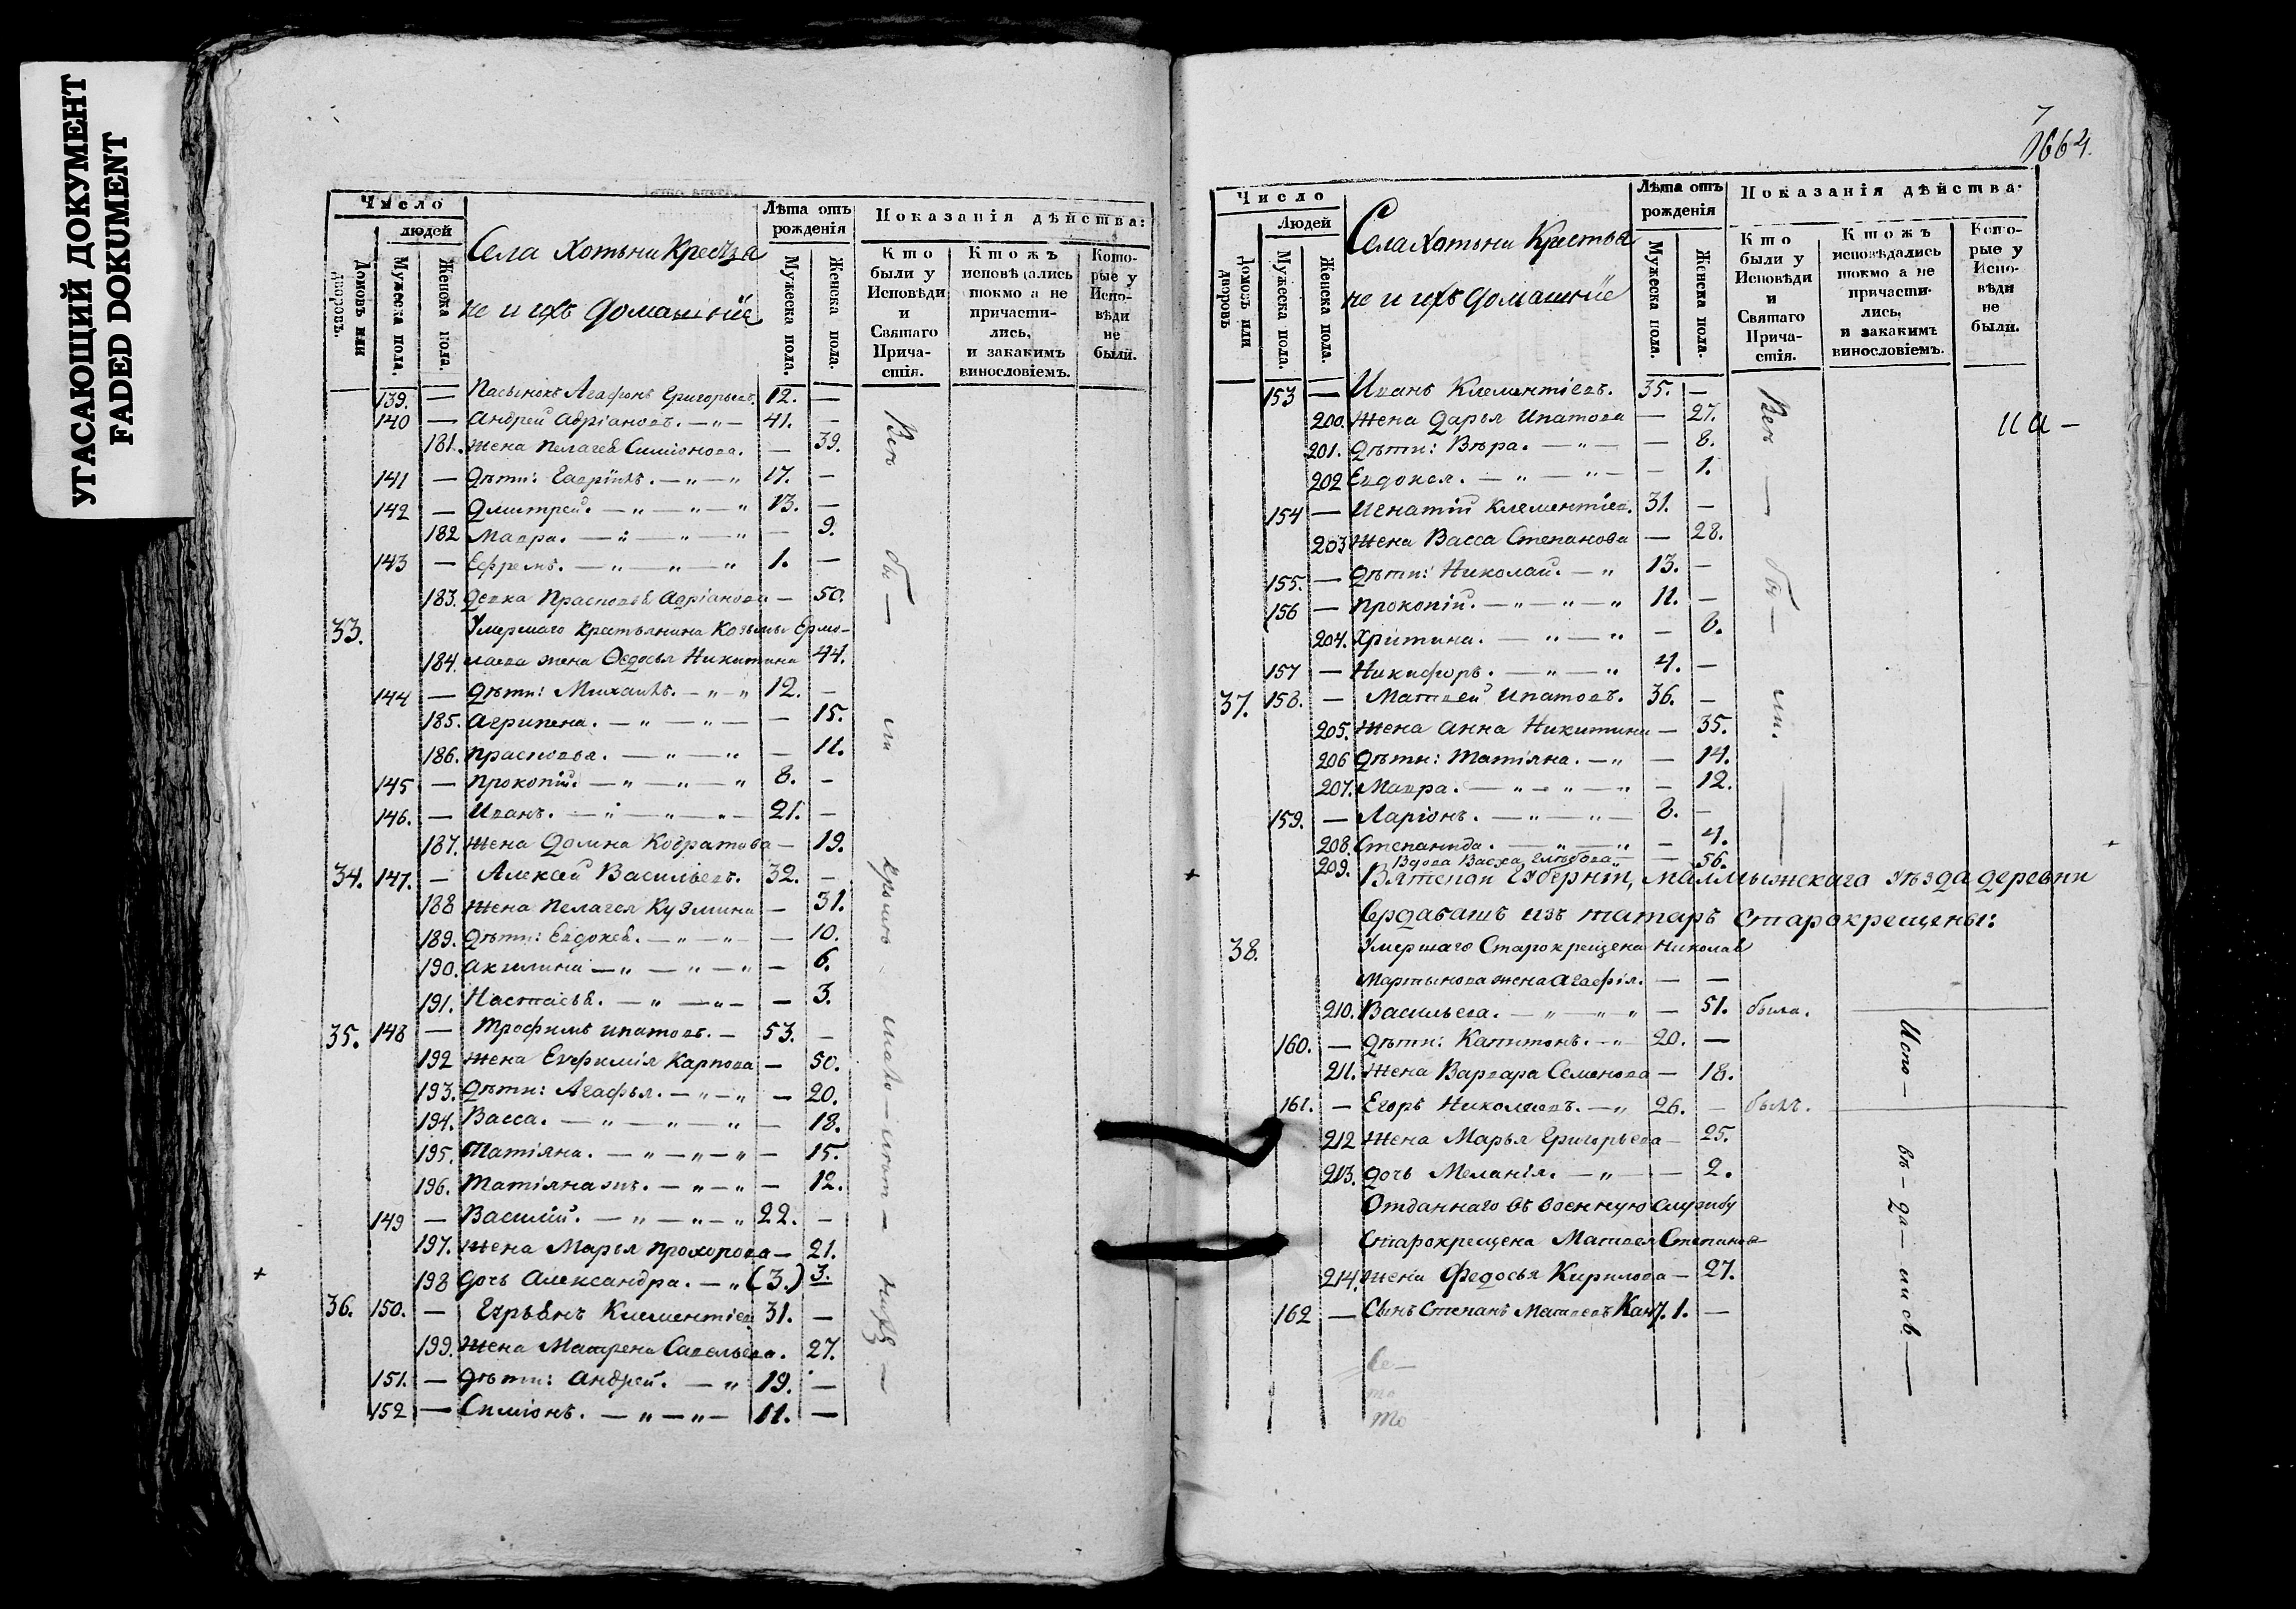 УГАСАЮЩИЙ ДОКУМЕНТ
FADED DOKUMENT
Число
людей
Домовъ или дворовъ.
Мужеска пола.
Женска пола.
Села Хотьни Кресть
не и ихъ домашніе
Лѣта отъ
рожденія
Мужеска пола.
Женска пола.
Показанія дѣйства:
Кто были у Исповѣди и Святаго Прича-стія.
Ктожъ исповѣдались токмо а не причасти-лись, и закакимъ винословіемъ.
Кото-рые у Испо-вѣди не были.
139. — Пасынокъ Агафонъ Григорьевъ. 12. —
140 — Андрей Адріановъ. — „ — 41. —
181. Жена Пелагея Симіонова. — 39.
141 — Дѣти: Гаврiилъ. — „ — „ 17. —
142 — Дмитрей. — „ — „ — „ 13. —
182 Мавра. — „ — „ — „ — 9.
143 — Ефремъ. — „ — „ — „ 1. —
183. Девка Прасковья Адріанова — 50.
33. Умершаго крестьянина Козьмы Ермо-
184. лаева жена Ѳедосья Никитина 44.
144 — Дѣти: Михаилъ. — „ — „ 12. —
185. Агрипена. — „ — „ — — 15.
186. Прасковья. — „ — „ — 11.
145 — Прокопій. — „ — „ — „ 8. —
146. — Иванъ. — „ — „ — „ — 21. —
187. Жена Домна Кодратова — 19.
34. 147. — Алексей Васильевъ. 32. —
188 Жена Пелагея Кузмина — 31.
189. Дѣти: Евдокея. — „ — „ — — 10.
190. Акилина — „ — „ — „ — 6.
191. Настасья. — „ — „ — — 3.
35. 148 — Трофимъ Ипатовъ. — 53. —
192 Жена Евфимія Карпова — 50.
193. Дѣти: Агафья. — „ — „ — 20.
194. Васса. — „ — „ — „ — 18.
195. Татіяна. — „ — „ — „ — 15.
196. Татіяна жъ. — „ — „ — 12.
149 — Василій. — „ — „ — „ 22. —
197. Жена Марья Прохорова — 21.
198 Дочь Александра. — „ (3.) 3.
36. 150. — Клементіев 31. —
199. Жена Матрена Савельева. 27.
151. — Дѣти: Андрей. — „ 19. —
152 — Симіонъ. — „ — „ — 11. —
Всѣ бы — ли
7
1664.
Число
Людей
Домовъ или дворовъ
Мужеска пола.
Женска пола.
Села Хотьни Крестья
не и ихъ домашніе
Лѣта отъ
рожденія
Мужеска пола.
Женска пола.
Показанія дѣйства:
Кто были у Исповѣди и Святаго Прича-стія.
Ктожъ исповѣдались токмо а не причасти-лись, и закакимъ винословіемъ.
Кото-рые у Испо-вѣди не были.
153 — Иванъ Клементіевъ. 35. —
200. Жена Дарья Ипатова — 27.
201. Дѣти: Вѣра. — „ — — 8.
202 Евдокея. — „ — „ — — 1.
154 — Игнатій Клементіев. 31. —
203 Жена Васса Степанова — 28.
155. — Дѣти: Николай. — „ 13. —
156 — Прокопій. — „ — „ — „ 11. —
204. Христина. — „ — „ — 8.
157 — Никифоръ. — „ — „ 4. —
37. 158. — Матвей Ипатовъ. 36. —
205. Жена Анна Никитина — 35.
206 Дѣти: Татіяна. — „ — 14.
207. Мавра. — „ — „ — „ — 12.
159. — Ларіонъ. — „ — „ — 8. —
208. Степанида. — „ — „ — 4.
209. Вдова Васса Глѣбова — — 56.
Вятской Губерніи, Малмыжскаго уѣзда деревни
Ердабашъ изъ татаръ старокрещены:
38. Умершаго Старокрещена Николая
Мартынова жена Агафія. — —
210. Васильева. — „ — „ — „ — 51. была.
160. — Дѣти: Капитонъ. — „ 20. —
211. Жена Варвара Семенова — 18.
161. — Егоръ Николаевъ. — „ 26. — былъ.
212 Жена Марья Григорьева — 25.
213. Дочь Меланія. — „ — — 2.
Отданнаго въ военную службу
Старокрещена Матвея Степанова
214. Жена Федосья Кирилова — 27.
162 — Сынъ Степанъ Матвеевъ 1. —
Всѣ — бы — ли.
Испо — вѣ — да — лись —